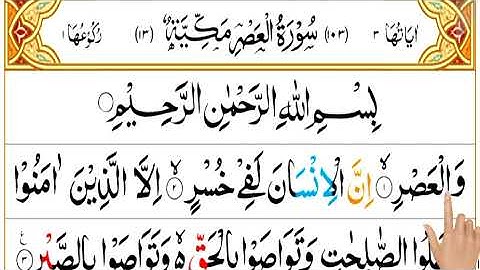 اٰيَاتُهَا ٣ (١٠٣) سُوْرَةُ الْعَصْرِ مَكِّيَّةٌ (١٣) رُكُوْعُهَا ١
بِسْمِ اللهِ الرَّحْمٰنِ الرَّحِيْمِ
وَالْعَصْرِ ۙ﴿١﴾ اِنَّ الْاِنْسَانَ لَفِيْ خُسْرٍ ۙ﴿٢﴾ اِلَّا الَّذِيْنَ اٰمَنُوْا
الصّٰلِحٰتِ وَتَوَاصَوْا بِالْحَقِّ ۙ٥ وَتَوَاصَوْا بِالصَّبْرِ ﴿٣﴾